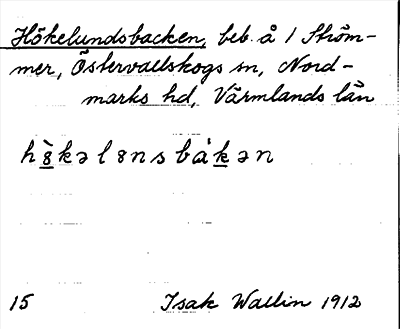 Hökelundsbacken, beb. å 1 Ström-
mer, Östervallskogs sn, Nord-
marks hd, Värmlands län
15 Isak Wallin 1912